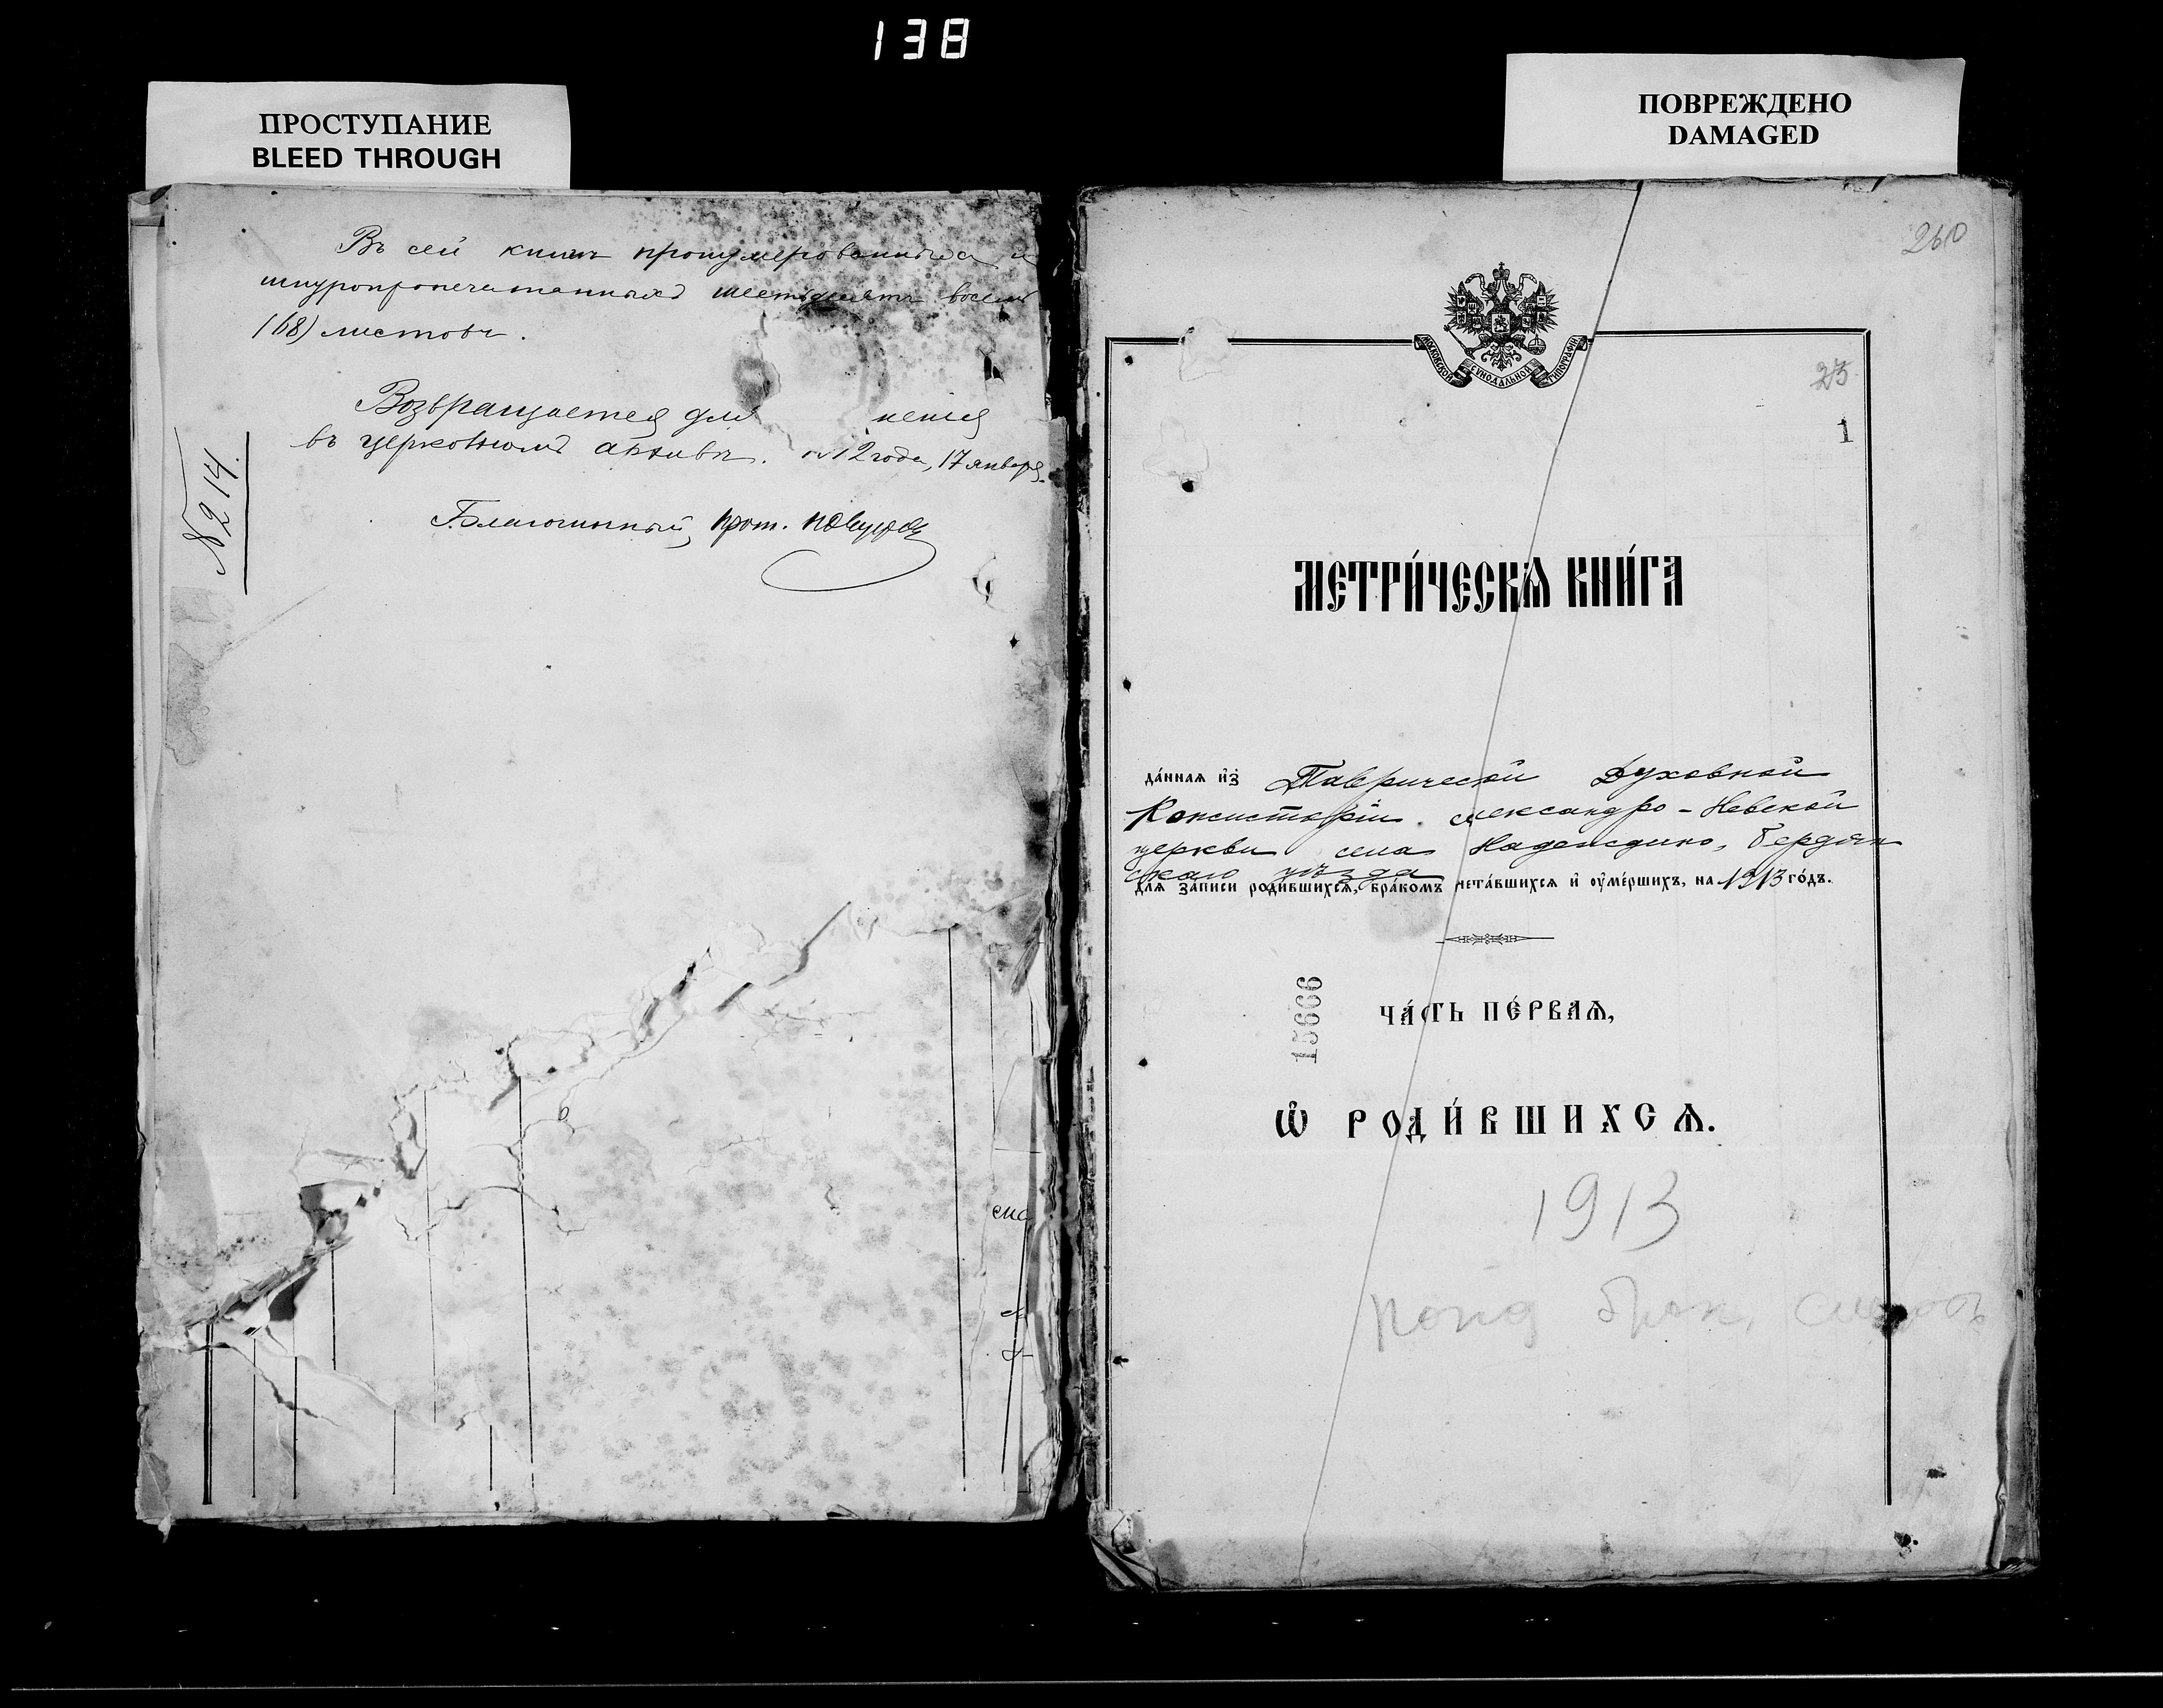 138
ПРОСТУПАНИЕ
BLEED THROUGH
Въ сей книгѣ пронумерованныхъ и
шнуропропечатанныхъ шестьдесятъ восемь
(68) листовъ.
Возвращается для нения
въ церковномъ архивѣ. 1912 года, 17 января.
Благочинный, прот.
№214.
ПОВРЕЖДЕНО
DAMAGED
260
МОСКОВСКОЙ СѴНОДАЛЬНОЙ ТИПОГРАФІИ
23
1
МЕТРИ́ЧЕСКАѦ КНИ́ГА
да́нная и҆з̾ Таврической Духовной
Консисторіи Александро-Невской
церкви села Надеждино, Бердян
скаго уѣзда
для за́писи роди́вшихсѧ, бра́комъ четавшихсѧ и҆ ᲂу҆ме́ршихъ, на 1913 го́дъ.
15666
ЧА́СТЬ ПЕ́РВАѦ,
Ѽ РОДИ́ВШИХСѦ.
1913